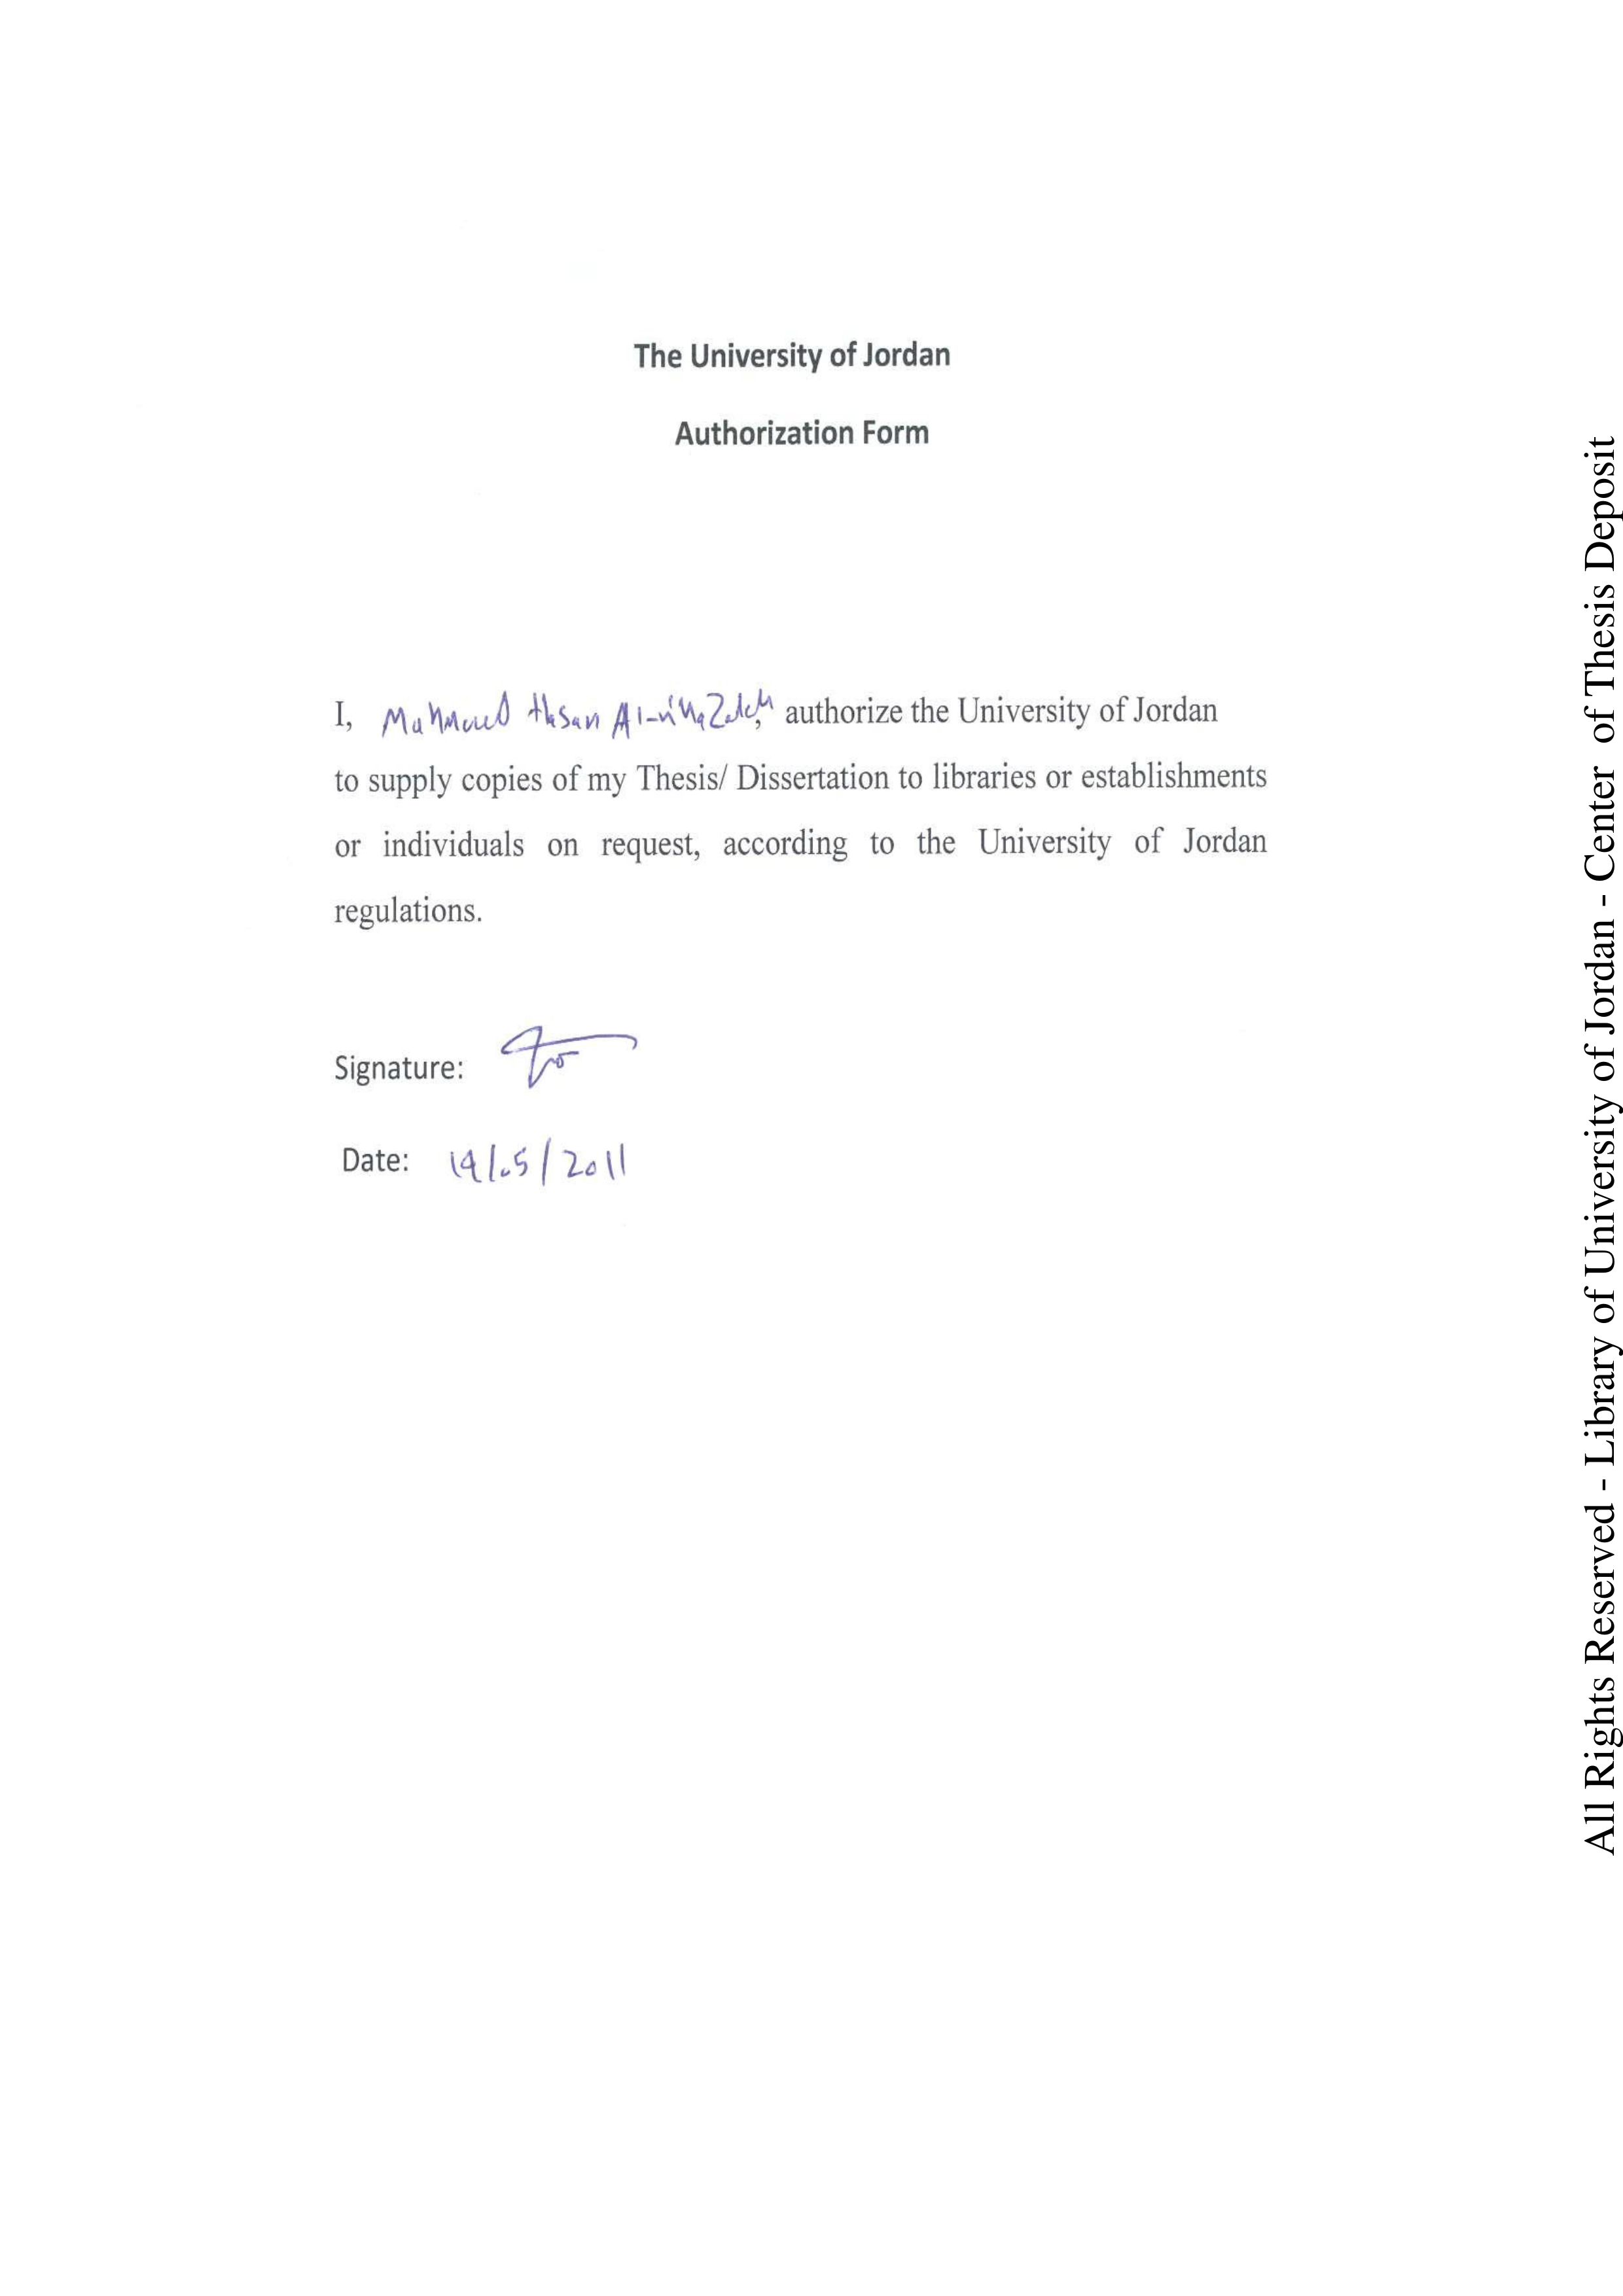 The University of Jordan
Authorization Form
I, Mahmoud Hasan authorize the University of Jordan
to supply copies of my Thesis/ Dissertation to libraries or establishments
or individuals on request, according to the University of Jordan
regulations.
Signature:
Date: 14/05/2011
All Rights Reserved - Library of University of Jordan - Center of Thesis Deposit